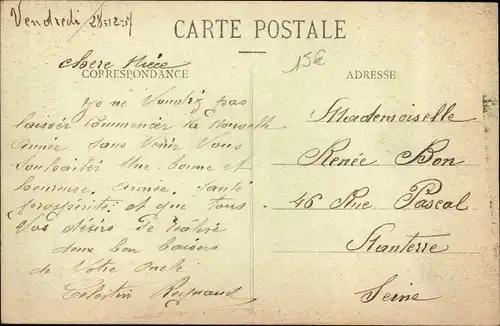 Vendredi 28-12-17
CARTE POSTALE
15€
chere Niéce
CORRESPONDANCE
ADRESSE
Je ne Voudriz pas
laissér Commencér la Nouvelle
Année sans Venir Vous
Souhaitér Une bonne et
heureuse Année. Santé
prospérité. et que tous
Vos désirs Se réalise
doux bon baisers
de Votre Oncle
Celestin Reynaud
Mademoiselle
Renée Bon
46 Rue Pascal
Nanterre
Seine